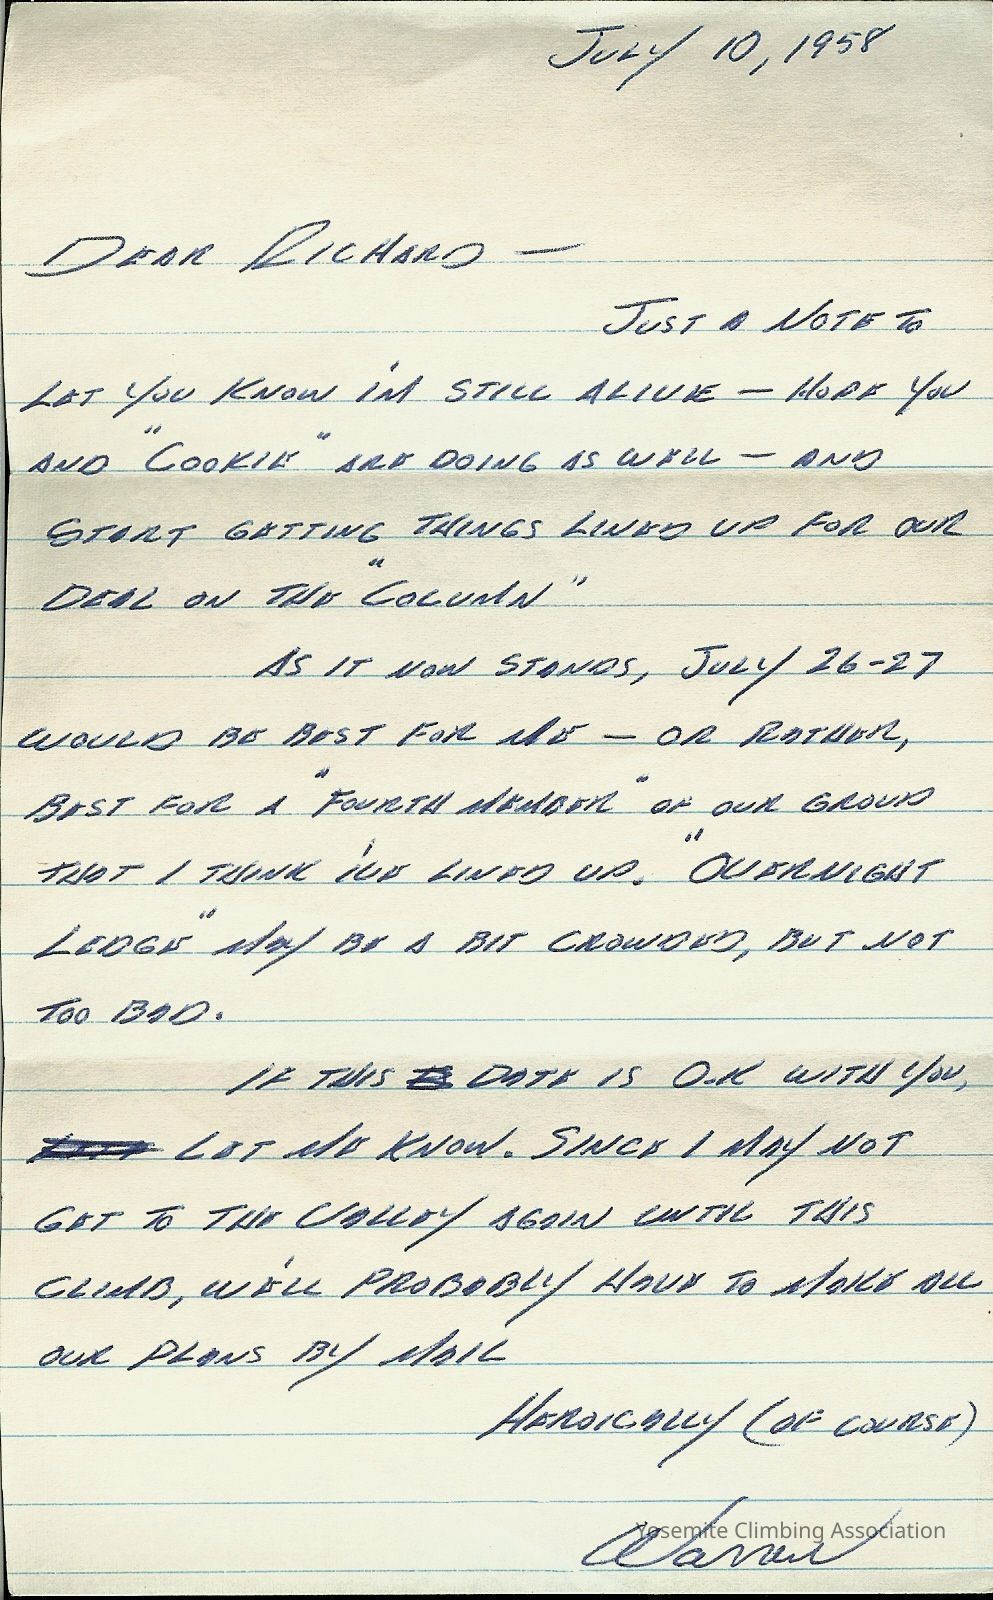 JULY 10, 1958
DEAR RICHARD —
JUST A NOTE TO
LET YOU KNOW I'M STILL ALIVE — HOPE YOU
AND "COOKIE" ARE DOING AS WELL — AND
START GETTING THINGS LINED UP FOR OUR
DEAL ON THE "COLUMN"
AS IT NOW STANDS, JULY 26-27
WOULD BE BEST FOR ME — OR RATHER,
BEST FOR A "FOURTH MEMBER" OF OUR GROUP
THAT I THINK I'VE LINED UP. "OVERNIGHT
LEDGE" MAY BE A BIT CROWDED, BUT NOT
TOO BAD.
IF THIS DATE IS O.K WITH YOU,
LET ME KNOW. SINCE I MAY NOT
GET TO THE VALLEY AGAIN UNTIL THIS
CLIMB, WE'LL PROBABLY HAVE TO MAKE ALL
OUR PLANS BY MAIL
HEROICALLY (OF COURSE)
Warren
Yosemite Climbing Association